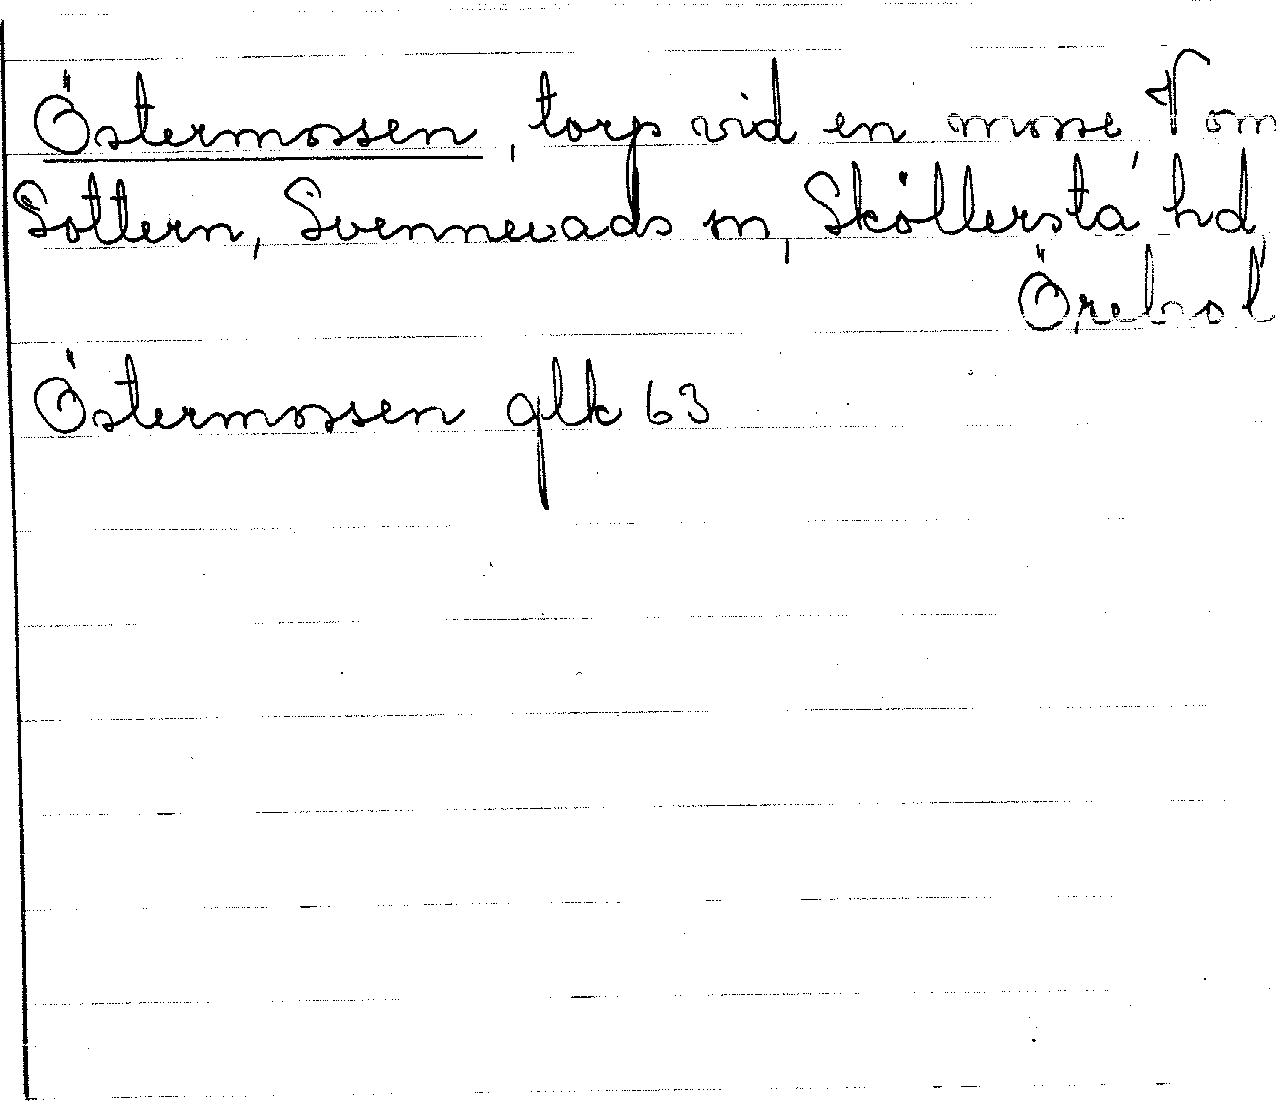 Östermossen, torp vid en mosse V om
Sottern, Svennevads sn, Sköllersta hd,
Örebro l
Östermossen glk 63